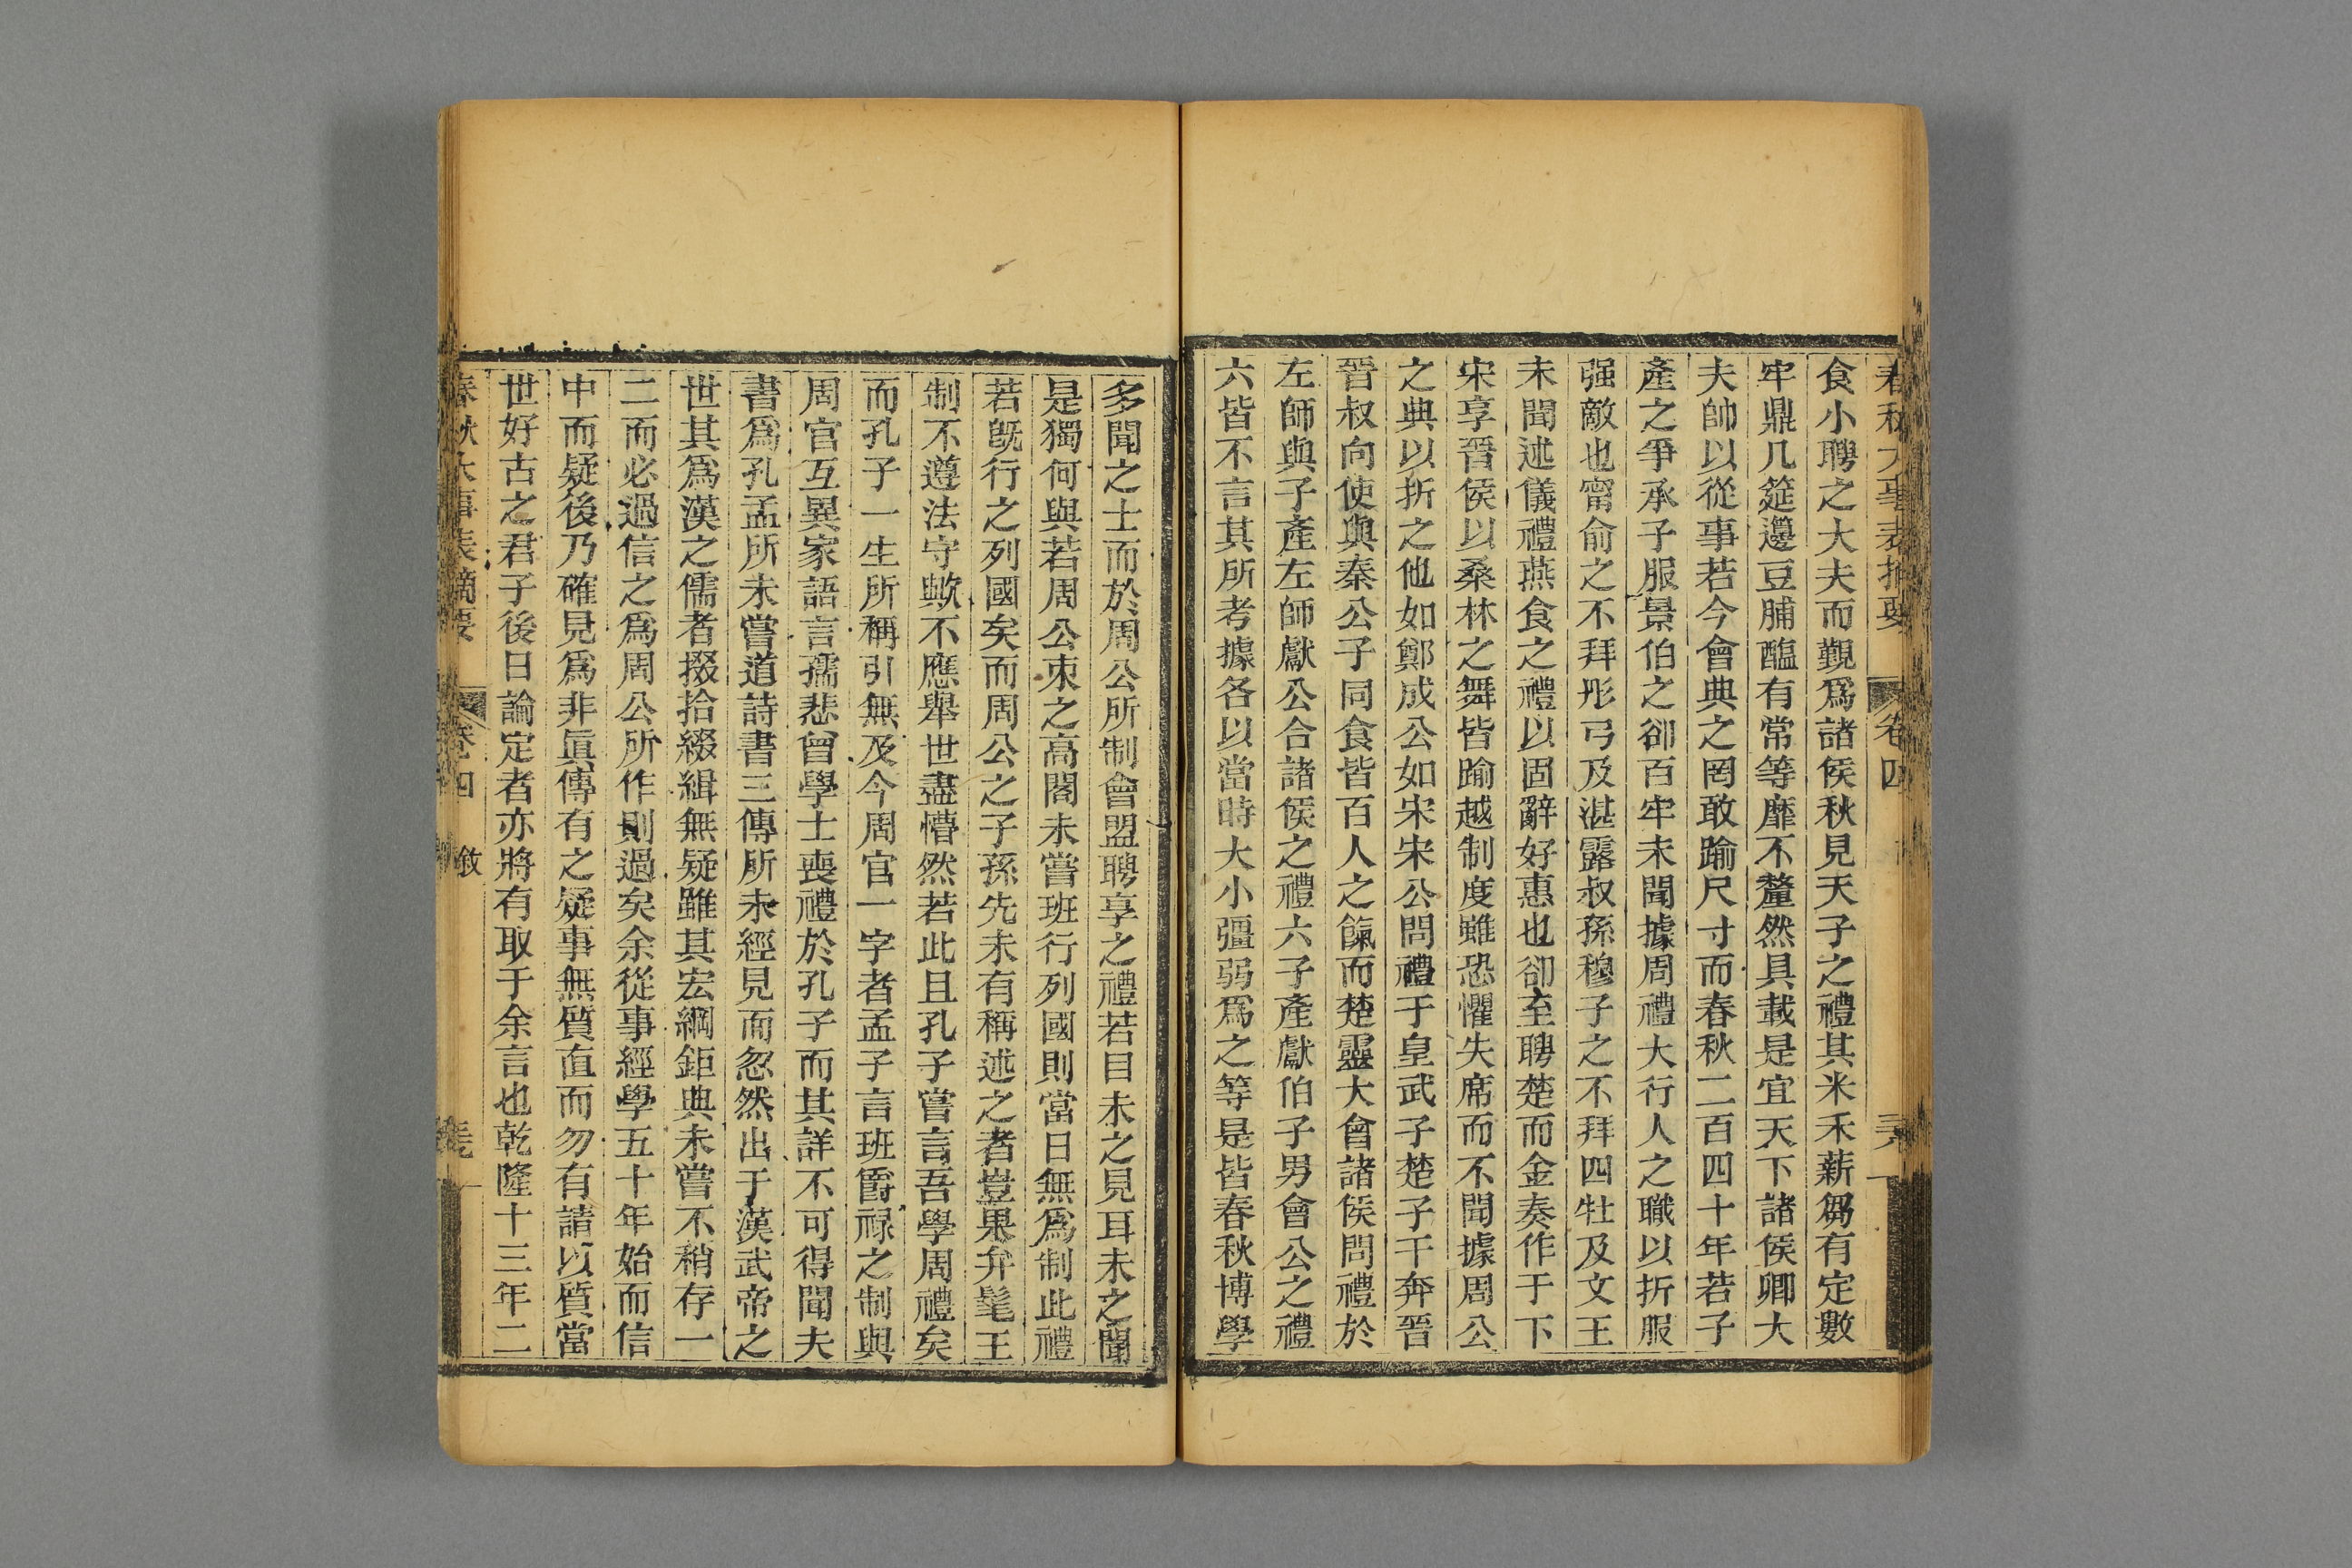 春秋大事表摘要 卷四
食小聘之大夫而觀爲諸侯秋見天子之禮其米禾薪芻有定數
牢鼎几筵籩豆脯醢有常等靡不釐然具載是宜天下諸侯卿大
夫帥以從事若今會典之罔敢踰尺寸而春秋二百四十年若子
產之爭承子服景伯之卻百牢未聞據周禮大行人之職以折服
强敵也甯俞之不拜彤弓及湛露叔孫穆子之不拜四牡及文王
未聞述儀禮燕食之禮以固辭好惠也卻至聘楚而金奏作于下
宋享晉侯以桑林之舞皆踰越制度雖恐懼失席而不聞據周公
之典以折之他如鄭成公如宋宋公問禮于皇武子楚子干奔晉
晉叔向使與秦公子同食皆百人之餼而楚靈大會諸侯問禮於
左師與子產左師獻公合諸侯之禮六子產獻伯子男會公之禮
六皆不言其所考據各以當時大小彊弱爲之等是皆春秋博學
多聞之士而於周公所制會盟聘享之禮若目未之見耳未之聞
是獨何與若周公束之高閣未嘗班行列國則當日無爲制此禮
若旣行之列國矣而周公之子孫先未有稱述之者豈果弁髦王
制不遵法守歟不應舉世盡懵然若此且孔子嘗言吾學周禮矣
而孔子一生所稱引無及今周官一字者孟子言班爵祿之制與
周官互異家語言孺悲曾學士喪禮於孔子而其詳不可得聞夫
書爲孔孟所未嘗道詩書三傳所未經見而忽然出于漢武帝之
世其爲漢之儒者掇拾綴緝無疑雖其宏綱鉅典未嘗不稍存一
二而必過信之爲周公所作則過矣余從事經學五十年始而信
中而疑後乃確見爲非眞傳有之疑事無質直而勿有請以質當
世好古之君子後日論定者亦將有取于余言也乾隆十三年二
春秋大事表摘要 卷四 敘